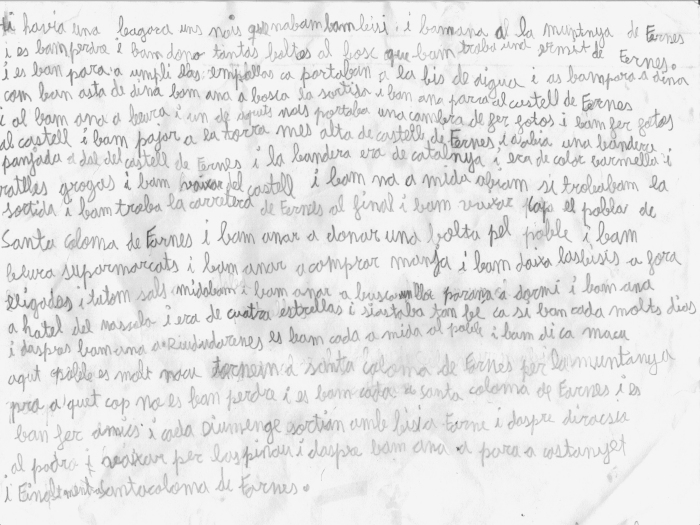 hi havia una begara uns nois que nabam bam bisi. i bamana al la muntnya de Farnes
i es bamperdre i bam dono tantas boltes al bosc que bam traba una ermit de Farnes.
i es ban para a umpli las empollas ca portaban a la bis de aigua i as bampara a dina
com ban asta de dina bam ana a bosca la sortida i bam ana parra al castell de Farnes
i al bam ana a beura i un de aquets nois portaba una cambra de fer fotos i bam fer fotos
al castell i bam pojar a la torra mes alta de castell de Farnes i abia una bandera
panjada a dal del castell de Farnes i la bandera era de catalnya i era de color barmella i
ratlles grogas i bam vaixar del castell i bam na a mida abiam si trobabam la
sortida i bam traba la carretera de Farnes al final i bam vaixar cap el poblar de
Santa coloma de Farnes i bam anar a donar una bolta pel poble i bam
beura suparmarcats i bam anar a comprar manja i bam daixa lasbisis a fora
lligades i tutom sals midabam i bam anar a busca un lloc parana a dormi i bam ana
a hotel del massola i era de cuatra estrellas i siastaba tan be ca si bam cada molts dias
i daspras bam ana a Riudadarenes es bam cada a mida al poble i bam di ca macu
aqut poble es molt macu tornem a santa coloma de Farnes per la muntanya
pro a quet cop no es ban perdre i es bam catas a santa coloma de Farnes i es
ban fer amics i cada Diumenge sortian amb bisia Farne i daspre
al padro i vaixar per las pinau i daspre bam ana a para a castanyet
i Finalment a Santa coloma de Farnes.